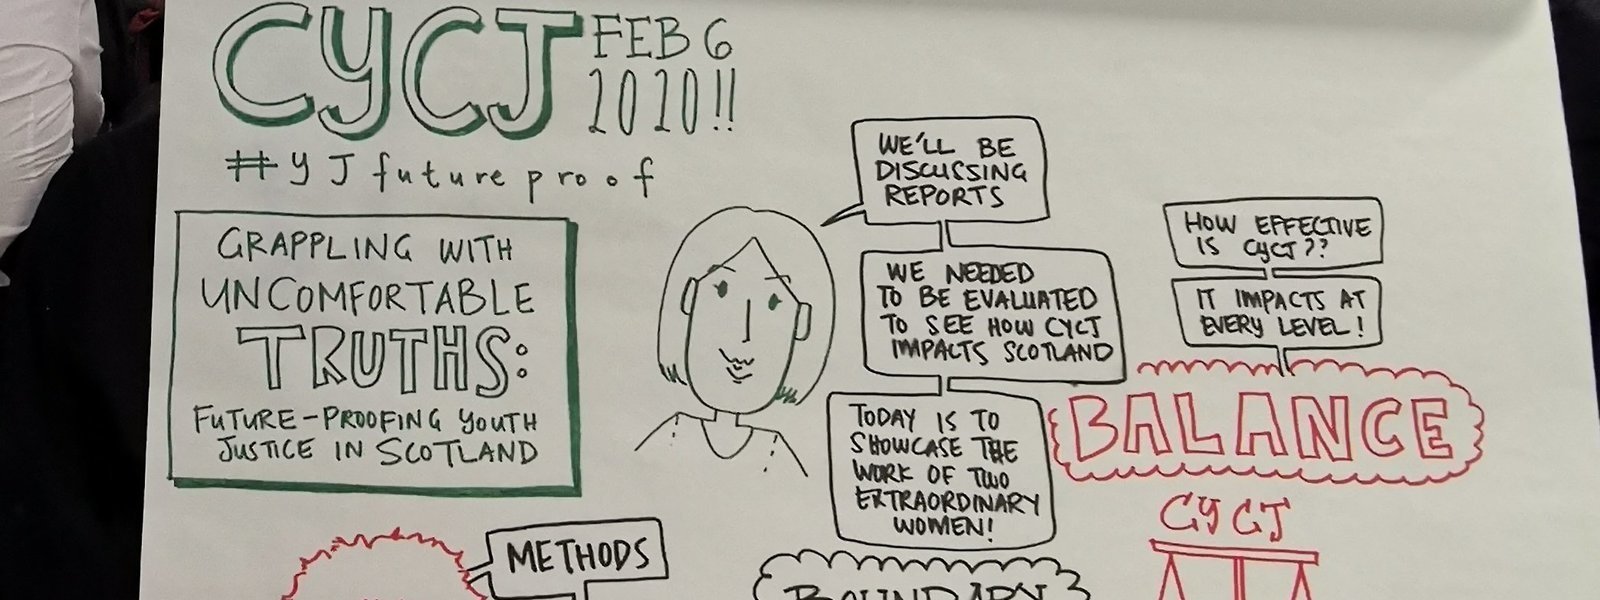 CYCJ
FEB 6
2020!!
#YJfutureproof
GRAPPLING WITH
UNCOMFORTABLE
TRUTHS:
FUTURE-PROOFING YOUTH
JUSTICE IN SCOTLAND
WE'LL BE
DISCUSSING
REPORTS
WE NEEDED
TO BE EVALUATED
TO SEE HOW CYCJ
IMPACTS SCOTLAND
TODAY IS TO
SHOWCASE THE
WORK OF TWO
EXTRAORDINARY
WOMEN!
HOW EFFECTIVE
IS CYCJ??
IT IMPACTS AT
EVERY LEVEL!
BALANCE
CYCJ
METHODS
BOUNDARY